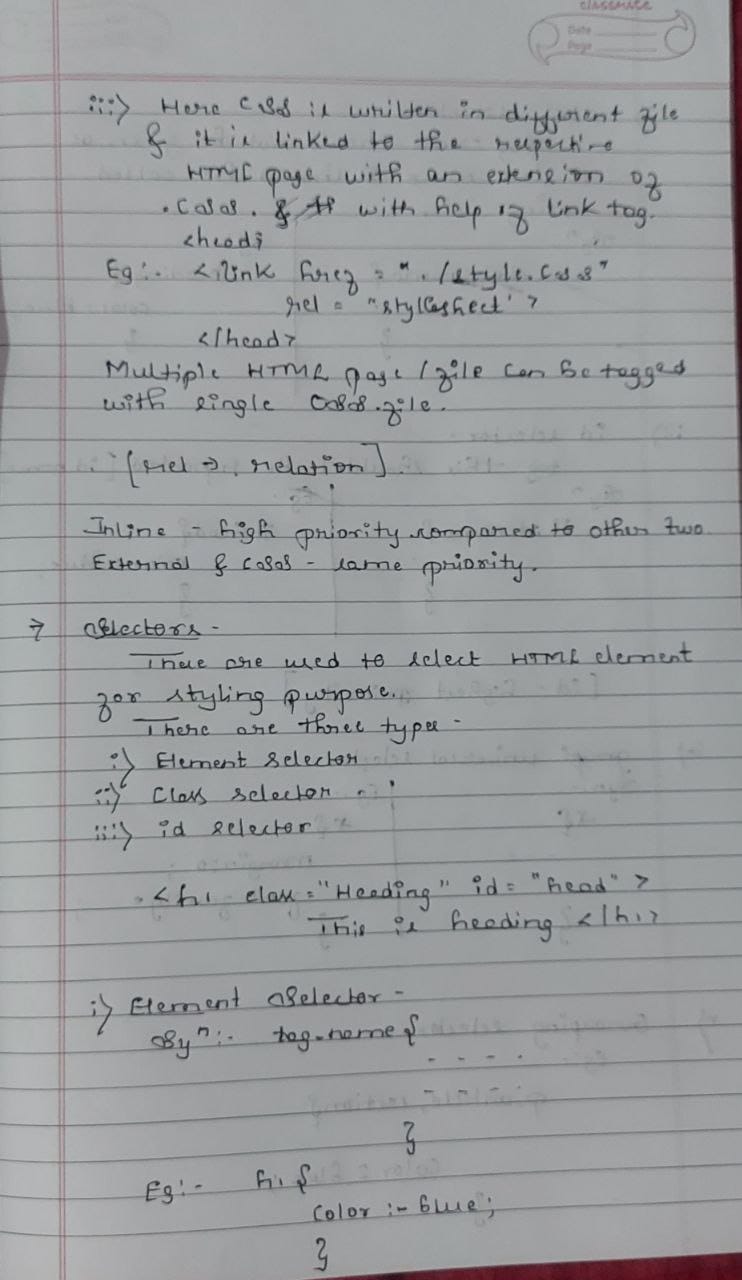 classmate
Date
Page
iii) Here CSS is written in different file
& it is linked to the respective
HTML page with an extension of
.CSS. & with help of link tag.
<head>
Eg:- <link href = "./style.css"
rel = "stylesheet" >
</head>
Multiple HTML page / file can be tagged
with single CSS.file.
[rel → relation]
Inline - high priority compared to other two
External & CSS - same priority.
→ Selectors -
These are used to select HTML element
for styling purpose.
There are three types -
i) Element selector
ii) Class selector
iii) id selector
<h1 class="Heading" id="head" >
This is heading </h1>
i) Element Selector -
Syⁿ:- tag-name {
- - - -
- - -
}
Eg:- h1 {
color :- blue;
}